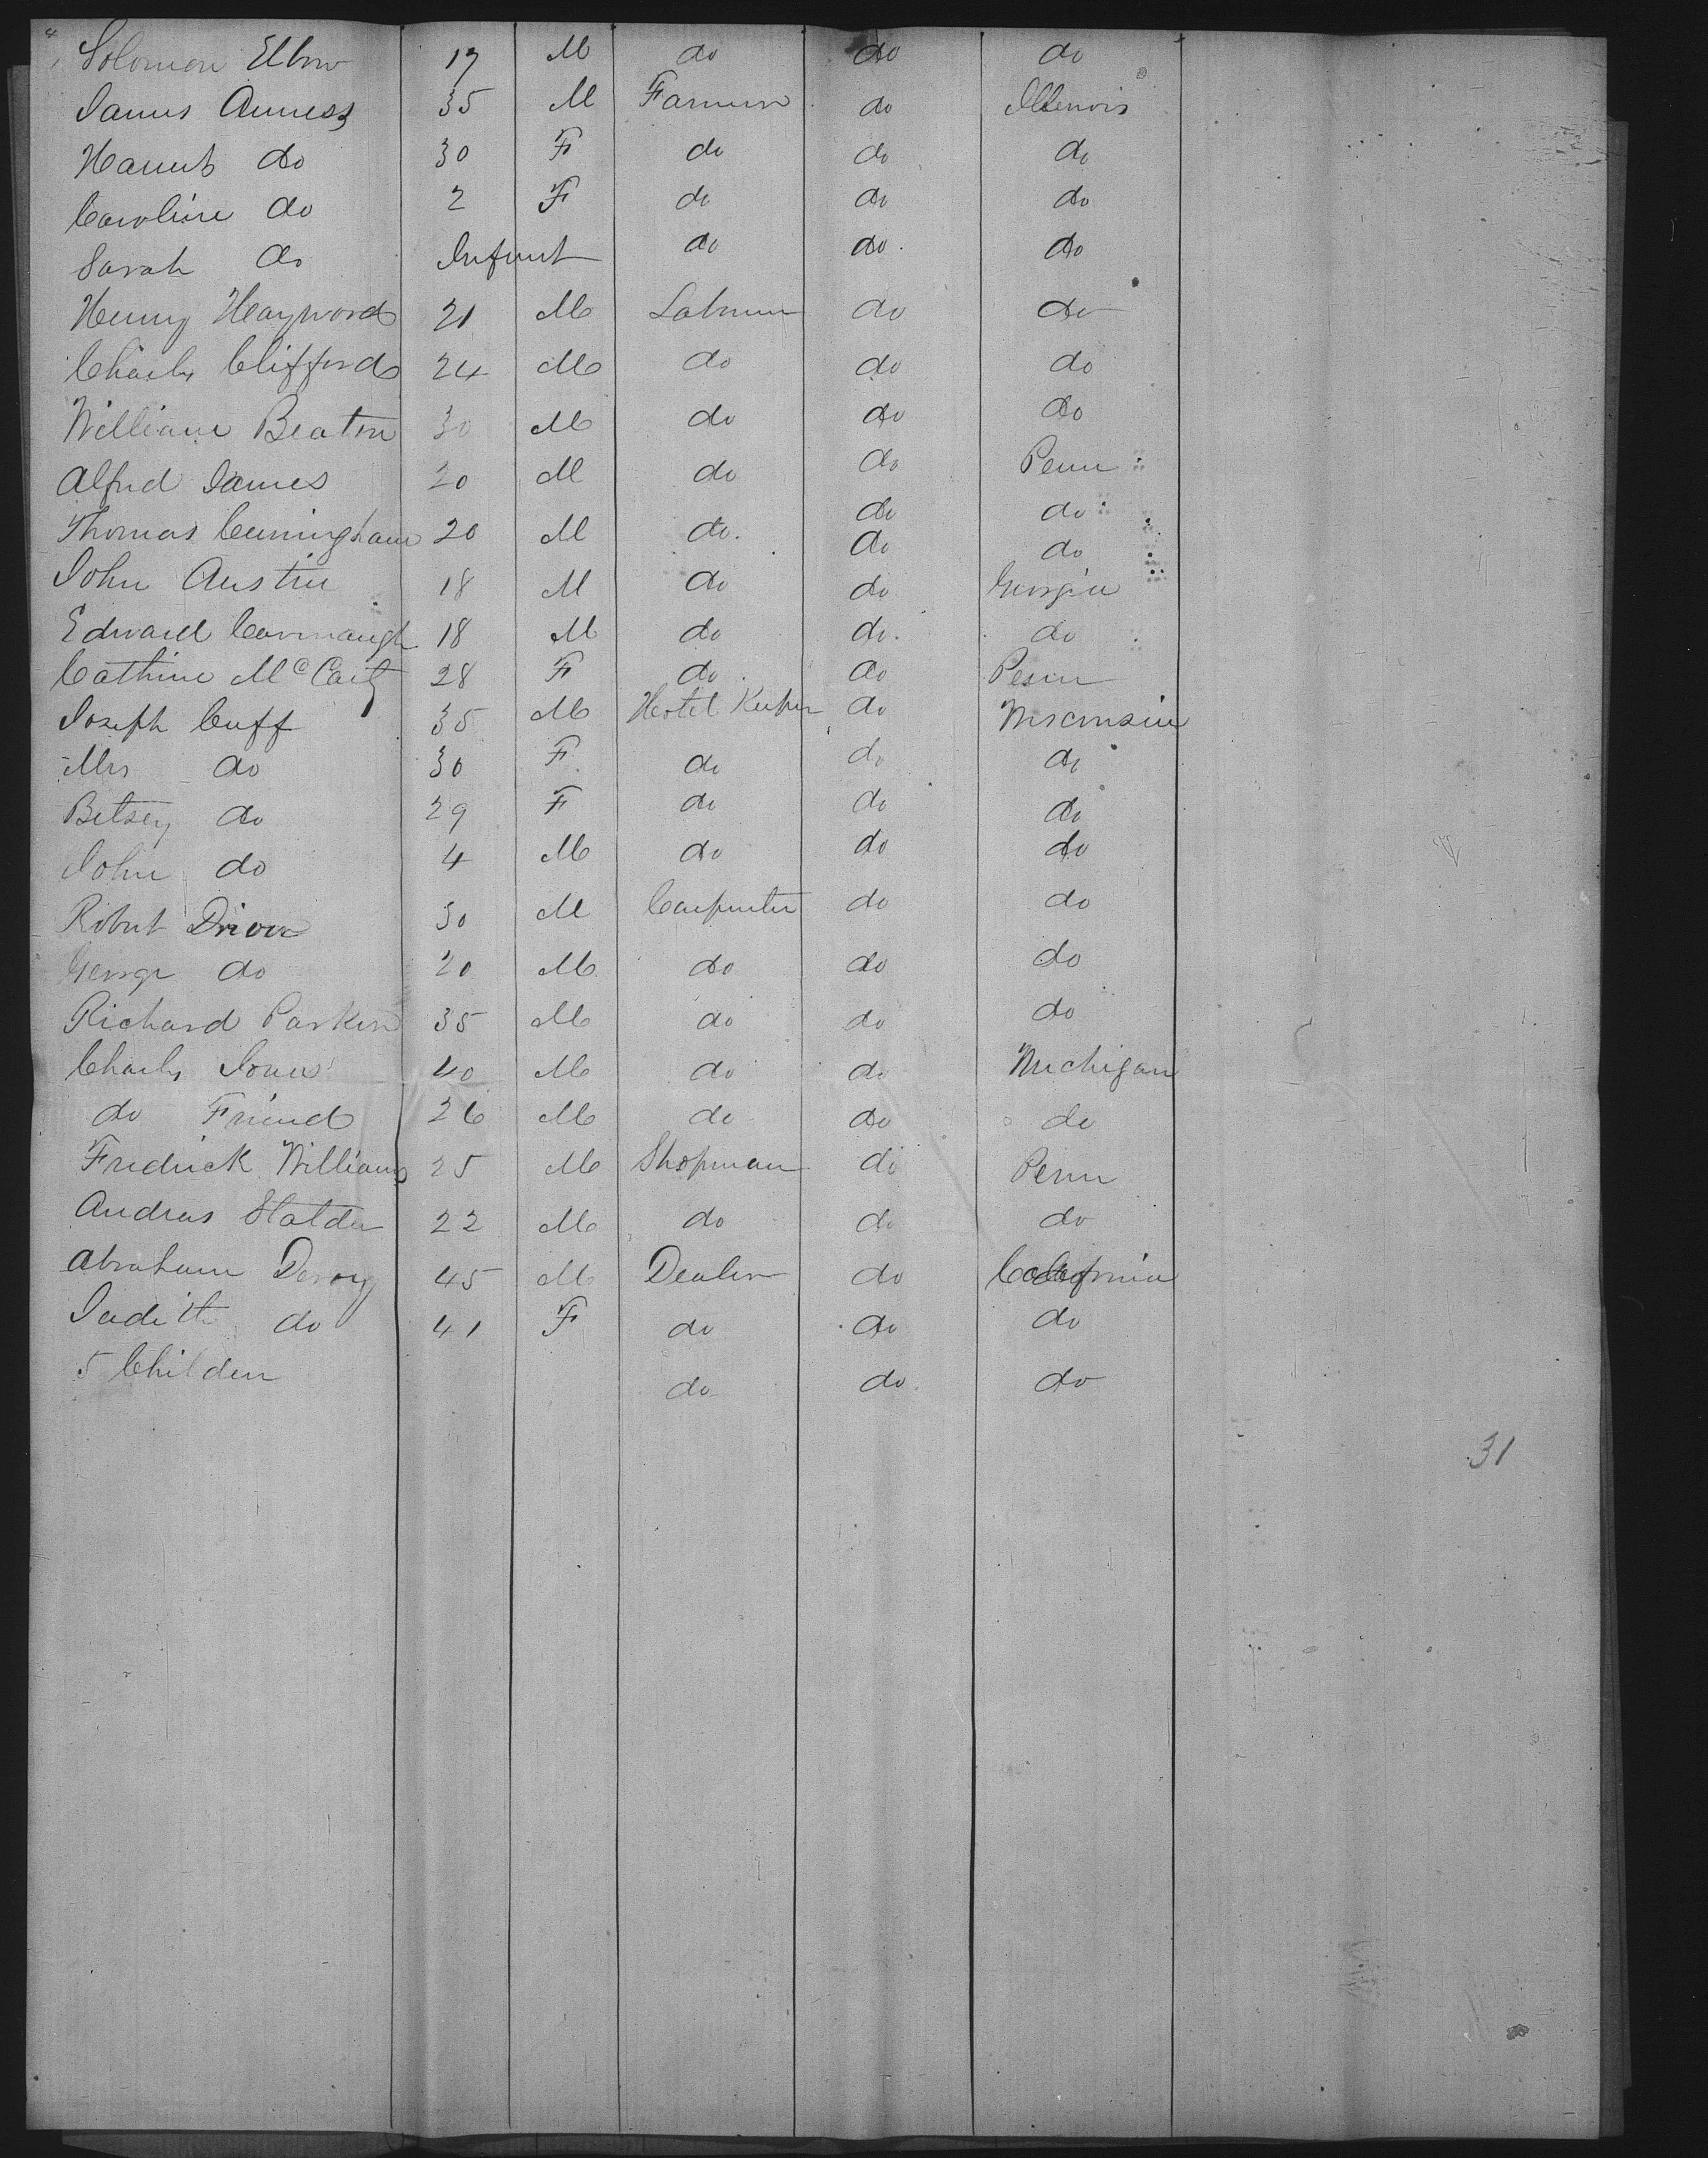 Solomon Elbow 19 M do do do
James Anness 35 M Farmer do Illenois
Harriet do 30 F do do do
Caroline do 2 F do do do
Sarah do Infant do do do
Henry Hayword 21 M Labourer do do
Charles Clifford 24 M do do do
William Beaton 30 M do do do
Alfred James 20 M do do Penn
Thomas Cuningham 20 M do do do
John Austin 18 M do do do
do Georgia
Edward Cavanaugh 18 M do do do
Cathrine McCarty 28 F do do Penn
Joseph Cuff 35 M Hotel Keeper do Wisconsin
Mrs do 30 F do do do
Betsey do 29 F do do do
John do 4 M do do do
Robert Driver 30 M Carpenter do do
George do 20 M do do do
Richard Parker 35 M do do do
Charles Jones 40 M do do Michigan
do Friend 26 M do do do
Fredrick Williams 25 M Shopman do Penn
Andreas Stalder 22 M do do do
Abraham 45 M Dealer do California
Judith do 41 F do do do
5 Children do do do
31